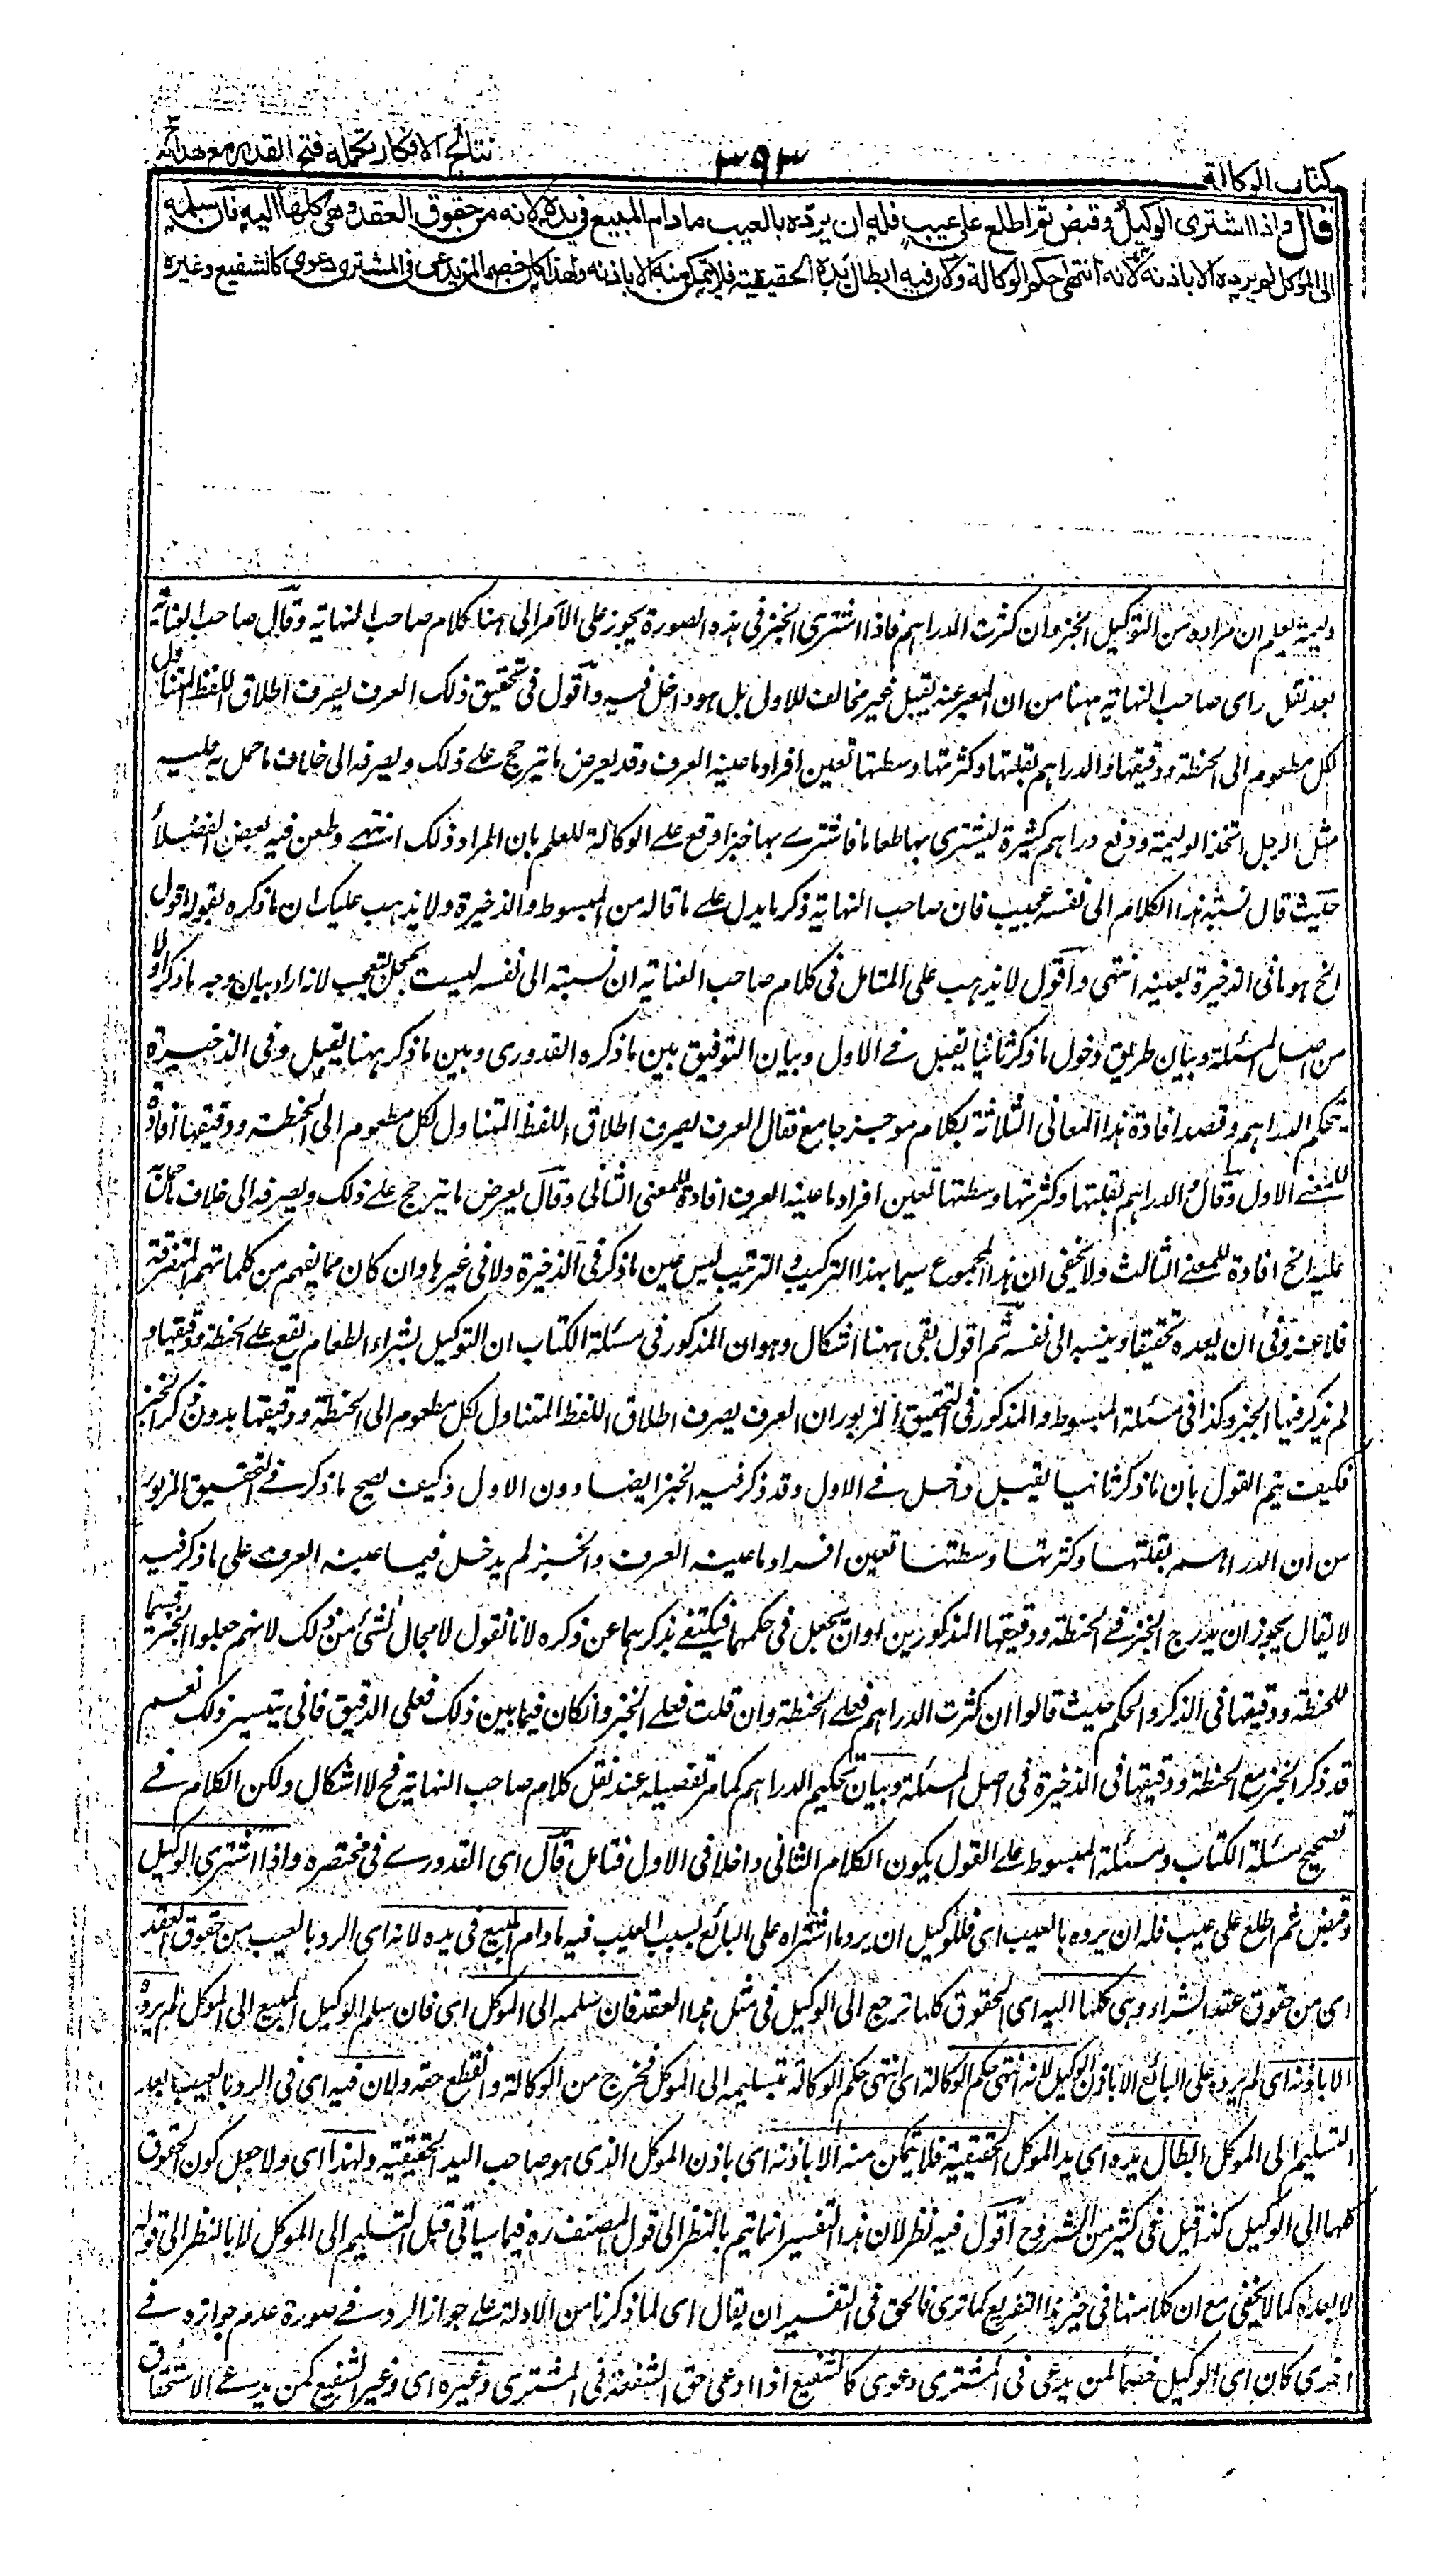 كتاب الوكالة
٣٩٣
نتائج الافكار تكملة فتح القدير مع هداية
قال واذا اشترى الوكيل وقبض ثم اطلع على عيب فله ان يرده بالعيب ما دام المبيع في يده لانه من حقوق العقد وهي كلها اليه فان سلمه
الى الموكل لم يرده الا باذنه لانه انتهى حكم الوكالة ولان فيه ابطال يده الحقيقية فلا يتمكن منه الا باذنه ولهذا كان خصما لمن يدعى في المشترى دعوى كالشفيع وغيره
وليمة يعلم ان مراده من التوكيل الخبز وان كثرت الدراهم فاذا اشترى الخبز في هذه الصورة يجوز على الآمر الى هنا كلام صاحب النهاية وقال صاحب العناية
بعد نقل راى صاحب النهاية ههنا من ان المعبر عنه بقيل غير مخالف للاول بل هو داخل فيه واقول في تحقيق ذلك العرف يصرف اطلاق اللفظ المتناول
لكل مطعوم الى الحنطة ودقيقها والدراهم بقلتها وكثرتها وسطتها تعين افراد ما عينه العرف وقد يعرض ما يترجح على ذلك ويصرفه الى خلاف ما حمل به عليه
مثل الرجل اتخذ الوليمة ودفع دراهم كثيرة ليشترى بها طعاما فاشترى بها خبزا وقع على الوكالة للعلم بان المراد ذلك انتهى وطعن فيه بعض الفضلاء
حيث قال نسبة هذا الكلام الى نفسه عجيب فان صاحب النهاية ذكر ما يدل على ما قاله من المبسوط والذخيرة ولا يذهب عليك ان ما ذكره بقوله اقول
الخ هو ما في الذخيرة بعينه انتهى واقول لا يذهب على المتامل في كلام صاحب العناية ان نسبته الى نفسه ليست بمحل تعجب لانه اراد بيان وجه ما ذكر اولا
من اصل المسئلة وبيان طريق دخول ما ذكر ثانيا بقيل في الاول وبيان التوفيق بين ما ذكره القدورى وبين ما ذكر ههنا بقيل وفي الذخيرة
بتحكيم الدراهم وقصد افادة هذا المعانى الثلاثة بكلام موجز جامع فقال العرف يصرف اطلاق اللفظ المتناول لكل مطعوم الى الحنطة ودقيقها افادة
للمعنى الاول وقال والدراهم بقلتها وكثرتها وسطتها تعين افراد ما عينه العرف افادة للمعنى الثانى وقال يعرض ما يترجح على ذلك ويصرفه الى خلاف ما حمل به
عليه الخ افادة للمعنى الثالث ولا يخفى ان هذا المجموع سيما بهذا التركيب والترتيب ليس عين ما ذكر في الذخيرة ولا في غيرها وان كان مما يفهم من كلماتهم المتفرقة
فلا عزو في ان يعده تحقيقا وينسبه الى نفسه ثم اقول بقى ههنا اشكال وهو ان المذكور في مسئلة الكتاب ان التوكيل بشراء الطعام يقع على الحنطة ودقيقها و
لم يذكر فيها الخبز وكذا في مسئلة المبسوط والمذكور في التحقيق المزبور ان العرف يصرف اطلاق اللفظ المتناول لكل مطعوم الى الحنطة ودقيقها بدون ذكر الخبز
فكيف يتم القول بان ما ذكر ثانيا بقيل داخل في الاول وقد ذكر فيه الخبز ايضا دون الاول وكيف يصح ما ذكر في التحقيق المزبور
من ان الدراهم بقلتها وكثرتها وسطتها تعين افراد ما عينه العرف والخبز لم يدخل فيما عينه العرف على ما ذكر فيه
لا يقال يجوز ان يدرج الخبز في الحنطة ودقيقها المذكورين او ان يجعل في حكمهما فيكتفى بذكرهما عن ذكره لانا نقول لا مجال لشئ من ذلك لانهم جعلوا الخبز قسيما
للحنطة ودقيقها في الذكر والحكم حيث قالوا ان كثرت الدراهم فعلى الحنطة وان قلت فعلى الخبز وان كان فيما بين ذلك فعلى الدقيق فانى يتيسر ذلك نعم
قد ذكر الخبز مع الحنطة ودقيقها في الذخيرة في اصل المسئلة وبيان تحكيم الدراهم كما مر تفصيله عند نقل كلام صاحب النهاية فح لا اشكال ولكن الكلام في
تصحيح مسئلة الكتاب ومسئلة المبسوط على القول بكون الكلام الثانى داخلا في الاول فتامل قال اى القدورى في مختصره واذا اشترى الوكيل
وقبض ثم اطلع على عيب فله ان يرده بالعيب اى فللوكيل ان يرد ما اشتراه على البائع بسبب العيب فيه ما دام المبيع في يده لانه اى الرد بالعيب من حقوق العقد
اى من حقوق عقد الشراء وهى كلها اليه اى الحقوق كلها ترجع الى الوكيل في مثل هذا العقد فان سلمه الى الموكل اى فان سلم الوكيل المبيع الى الموكل لم يرده
الا باذنه اى لم يرده على البائع الا باذن الوكيل لانه انتهى حكم الوكالة اى انتهى حكم الوكالة بتسليمه الى الموكل فخرج من الوكالة وانقطع حقه ولان فيه اى في الرد بالعيب بعد
التسليم الى الموكل ابطال يده اى يد الموكل الحقيقية فلا يتمكن منه الا باذنه اى باذن الموكل الذى هو صاحب اليد الحقيقية ولهذا اى ولاجل كون الحقوق
كلها الى الوكيل كذا قيل في كثير من الشروح اقول فيه نظر لان هذا التفسير انما يتم بالنظر الى قول المصنف ره فيما سيأتى قبل التسليم الى الموكل لا بالنظر الى قوله
لا بعده كما لا يخفى مع ان كلا منهما في حيز هذا التفريع كما ترى فالحق في التفسير ان يقال اى لما ذكرنا من الادلة على جواز الرد في صورة عدم جوازه في
اخرى كان اى الوكيل خصما لمن يدعى في المشترى دعوى كالشفيع اذا ادعى حق الشفعة في المشترى وغيره اى وغير الشفيع كمن يدعى الاستحقاق